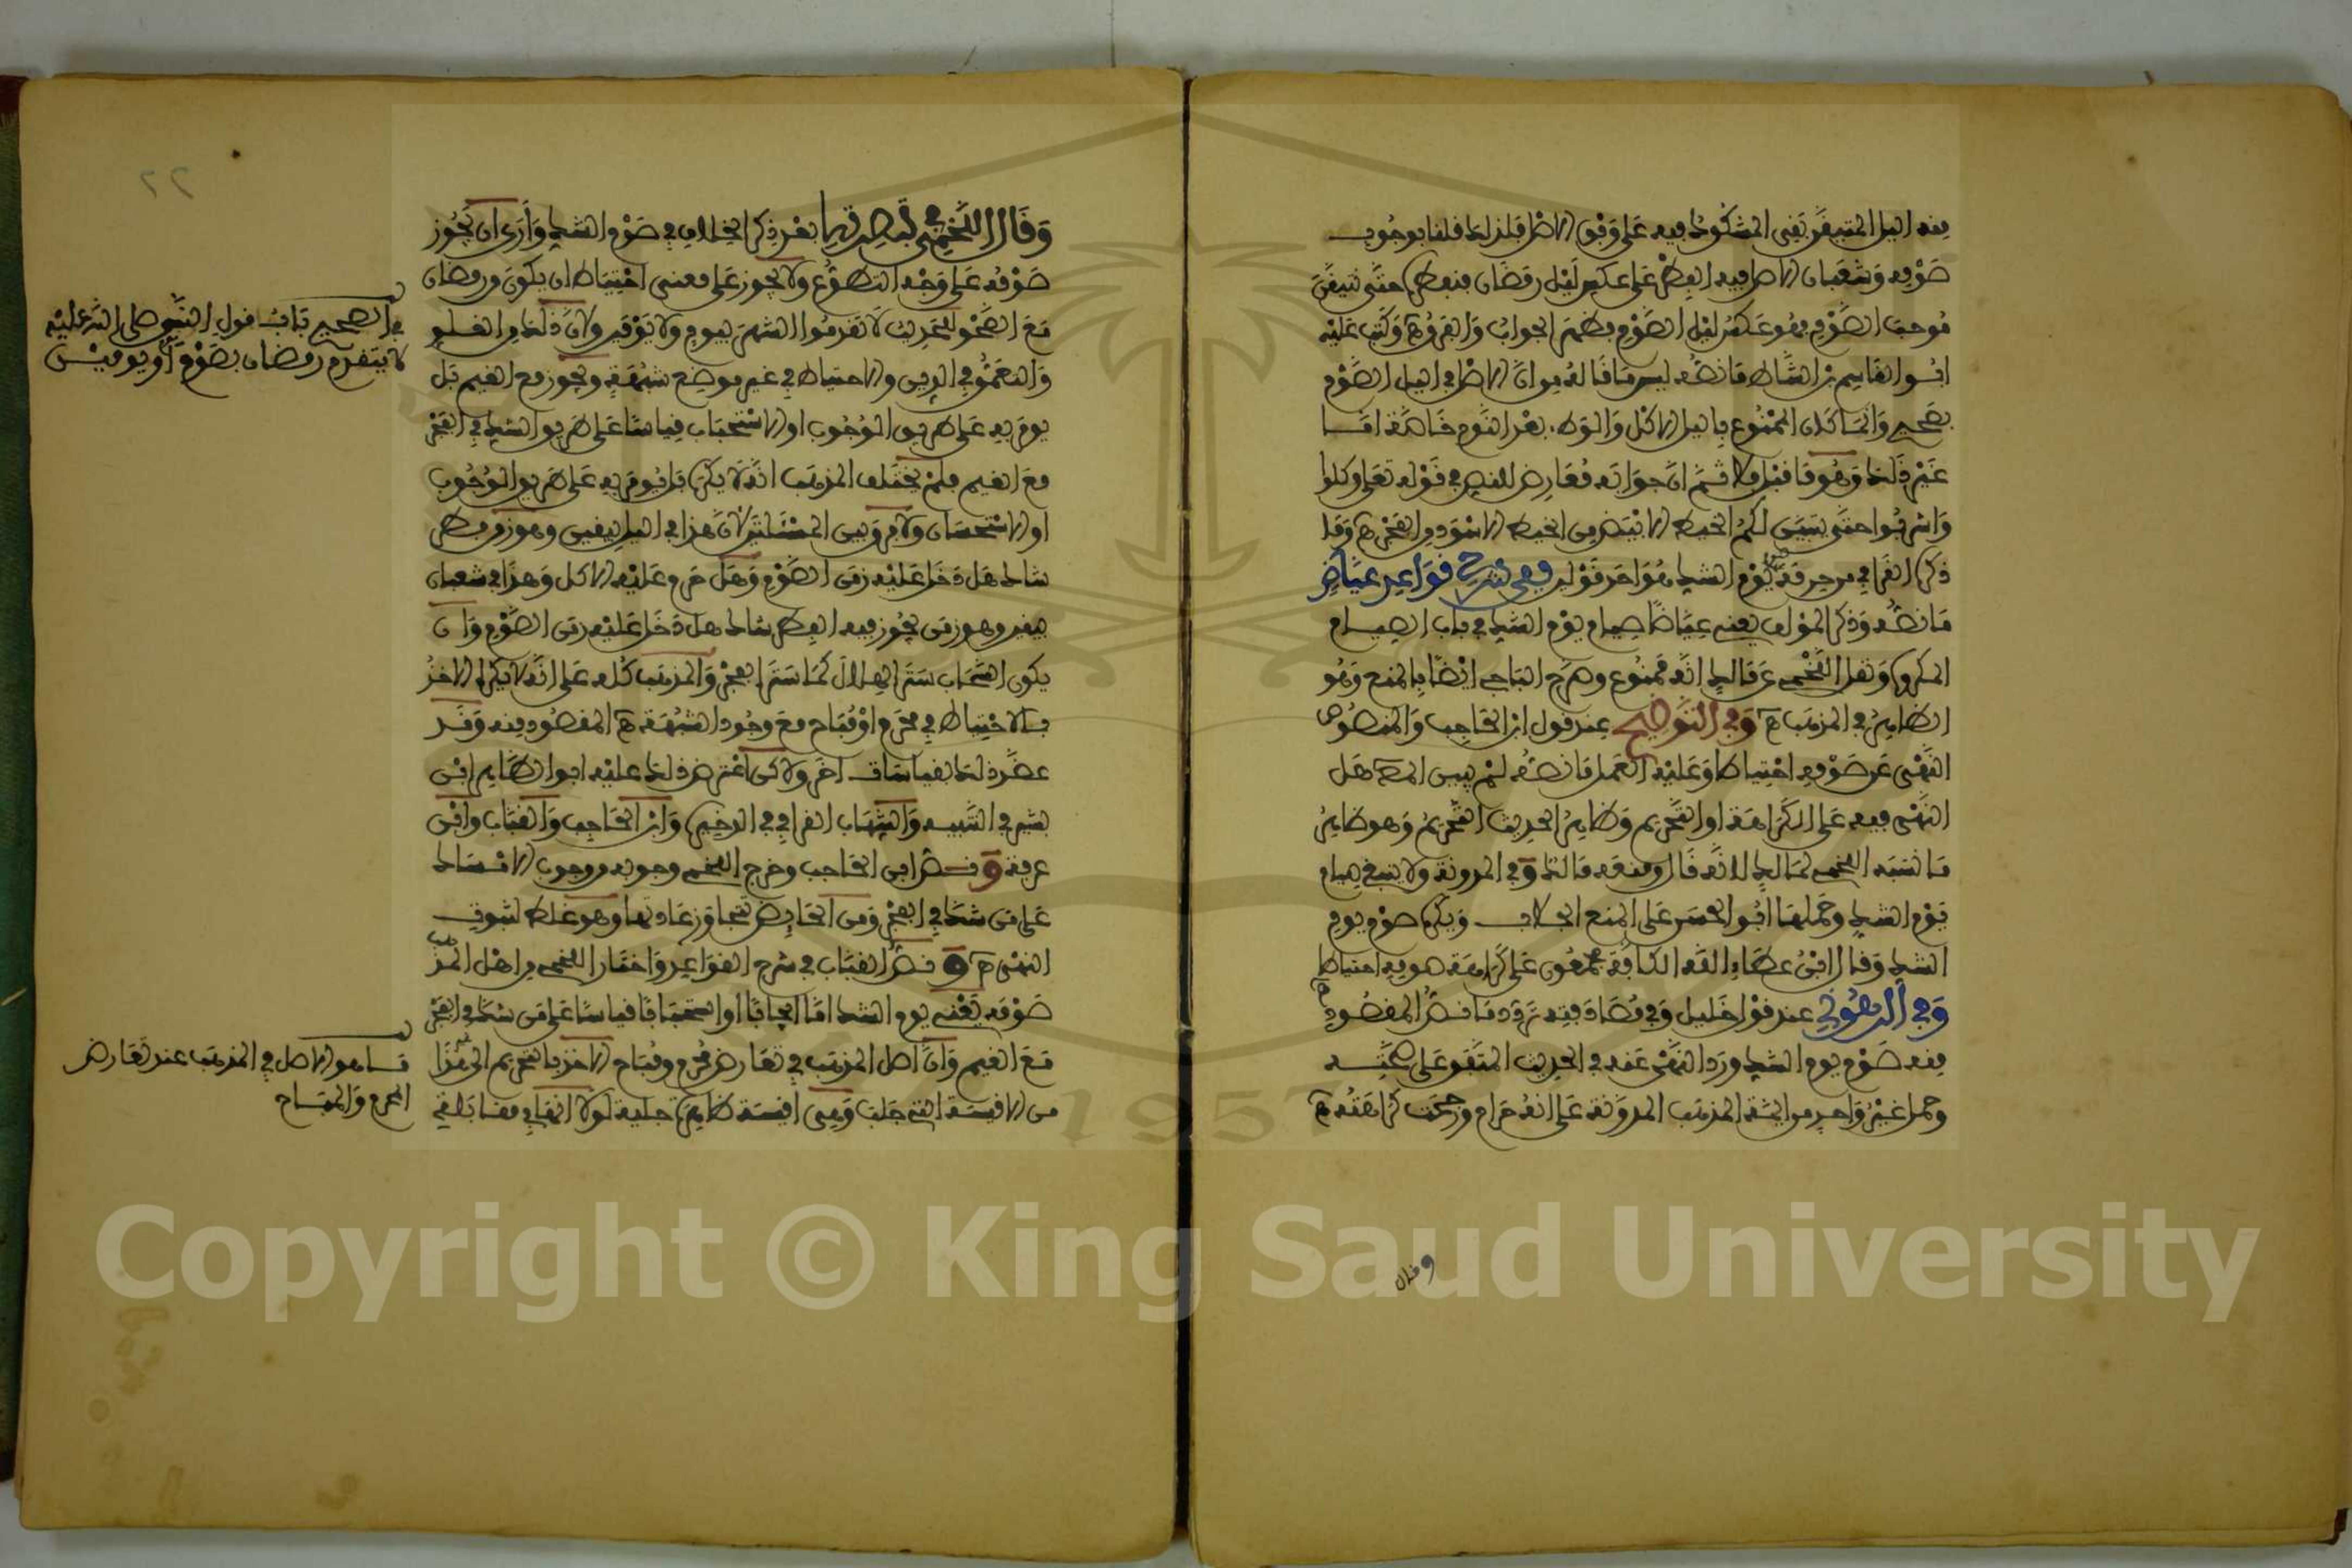 منه اليل المتيقن بقي المشكوك فيه على وفق الاصل فلذلك قلنا بوجوب
صومه وشعبان الاصل فيه الفطر على عكس ليل رمضان فنفطر حتى نتيقن
موجب الصوم فهو عكس ليل الصوم فظهر الجواب والفرق هـ وكتب عليه
ابو القاسم بن الشاط ما نصه ليس ما قاله من ان الاصل في اليل الصوم
بصحيح وانما كان الممنوع باليل الاكل والوطء بعد النوم خاصة اما
غير ذلك وهو ما قبل فلا ثم ان جوابه معارض للنص في قوله تعلى وكلوا
واشربوا حتى يتبين لكم الخيط الابيض من الخيط الاسود من الفجر هـ وما
ذكره القرافي من حرمة يوم الشك هو احد قولين ففي شرح قواعد عياض
ما نصه وذكر المؤلف يعني عياضا صيام يوم الشك في باب الصيام
المكروه ونقل اللخمي عن مالك انه ممنوع وصرح الباجي ايضا بالمنع وهو
الظاهر في المذهب هـ وفي التوضيح عند قول ابن الحاجب والمنصوص
النهي عن صومه احتياطا وعليه العمل ما نصه لم يبين المص هل
النهي فيه على الكراهة او التحريم وظاهر الحديث التحريم وهو ظاهر
ما نسبه اللخمي لمالك لانه قال ومنعه مالك وفي المدونة ولا ينبغي صيام
يوم الشك وحملها ابو الحسن على المنع الجلاب ويكره صوم يوم
الشك وقال ابن عطاء الله الكافة مجمعون على كراهة صومه احتياطا هـ
وفي الرهوني عند قول خليل وفي مصادفته تردد ما نصه المقصود
منه صوم يوم الشك ورد النهي عنه في الحديث المتفق على صحته
وحمل غير واحد من ايمة المذهب المدونة على انه حرام ورجحت كراهته هـ
وقال
وقال اللخمي في تبصرته بعد ذكر الخلاف في صوم الشك وأرى ان يجوز
صومه على وجه التطوع ولا يجوز على معنى احتياط ان يكون من رمضان
مع الصحو للحديث لا تقدموا الشهر بيوم ولا يومين ولان ذلك من الغلو
والتعمق في الدين والاحتياط في غير موضع شبهة ويجوز مع الغيم بل
يومر به على طريق الوجوب او الاستحباب قياسا على طريق الشك في الفجر
مع الغيم فلم يختلف المذهب انه لا يكره بل يومر به على طريق الوجوب
او الاستحسان ولا فرق بين المسئلتين لان هذا في اليل بيقين وهو زمن فطر
شاك هل دخل عليه زمن الصوم وهل حرم عليه الاكل وهذا في شعبان
بيقين وهو زمن يجوز فيه الفطر شاك هل دخل عليه زمن الصوم وان
يكون السحاب ستر الهلال كما ستر الفجر والمذهب كله على انه لا يكره الاخذ
بالاحتياط في محرم او مباح مع وجود الشبهة هـ المقصود منه وقد
عضد ذلك بقياسات اخر ولاكن اعترض ذلك عليه ابو الطاهر ابن
بشير في التنبيه والشهاب القرافي في الذخيرة وابن الحاجب والقباب وابن
عرفة ونص ابن الحاجب وخرج اللخمي وجوبه من وجوب الامساك
على من شك في الفجر ومن الحايض تتجاوز عادتها وهو غلط لثبوت
النهي هـ ونص القباب في شرح القواعد واختار اللخمي من اهل المذهب
صومه يعني يوم الشك اما ايجابا او استحبابا قياسا على من شك في الفجر
مع الغيم وان اصل المذهب في تعارض محرم ومباح الاخذ بالتحريم الى غير هذا
من الاقيسة التي جلب وهي اقيسة ظاهرة جلية لولا انها في مقابلة
في الصحيح باب قول النبي صلى الله عليه
لا يتقدم رمضان بصوم أو يومين
ما هو الاصل في المذهب عند تعارض
المحرم والمباح
٢٢
Copyright © King Saud University
1957